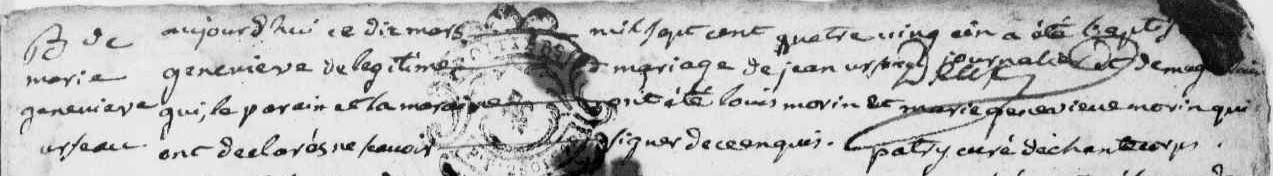 B de aujourd'hui ce dix mars mil sept cent quatre ving un a été bapt
marie genevieve de legitime mariage de jean urseau journalier et de
genevieve qui, le parain et la maraine ont été louis morin et marie genevieve morin qui
urseau ont declarés ne scavoir signer de ce enquis. patry curé de chantecorps.